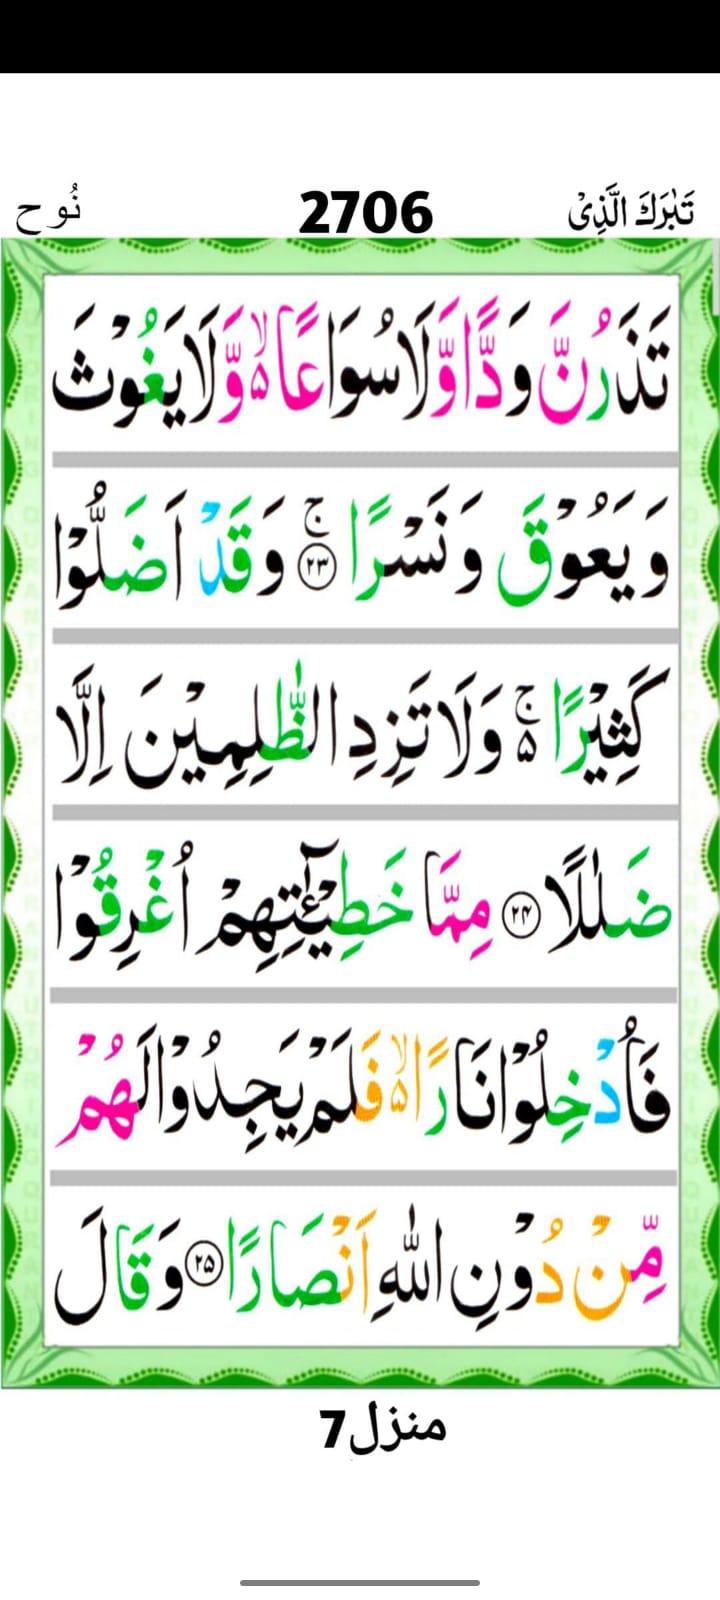 تَبٰرَكَ الَّذِىْ 2706 نُوح
تَذَرُنَّ وَدًّا وَّلَا سُوَاعًا ۙ۬ وَّلَا يَغُوْثَ
وَيَعُوْقَ وَنَسْرًا ۚ‏ ﴿۲۳﴾ وَقَدْ اَضَلُّوْا
كَثِيْرًا ۚ۬ وَلَا تَزِدِ الظّٰلِمِيْنَ اِلَّا
ضَلٰلًا ﴿۲۴﴾ مِمَّا خَطِيْٓـٰٔتِهِمْ اُغْرِقُوْا
فَاُدْخِلُوْا نَارًا ۙ۬ فَلَمْ يَجِدُوْا لَهُمْ
مِّنْ دُوْنِ اللّٰهِ اَنْصَارًا ﴿۲۵﴾ وَقَالَ
منزل7